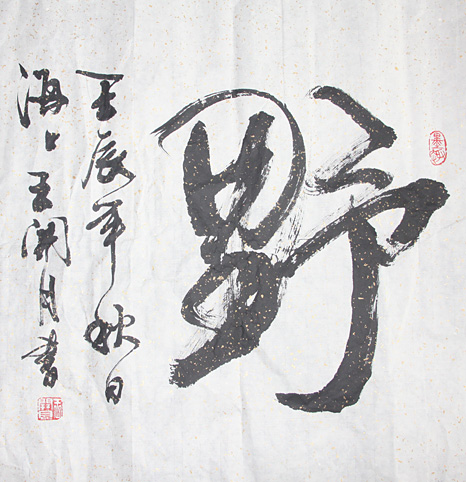 野
壬辰年秋日
海上王開月書